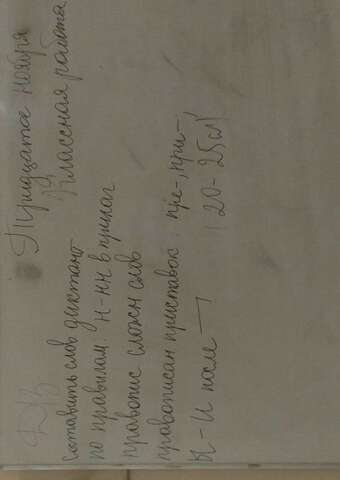 Тридцатое ноября
Классная работа
ДЗ
составить слов диктант
по правилам. Н-нн в прилаг
правопис сложн слов
правописан приставок, пре-, при-,
Ы - И после ¬ (20-25 сл)